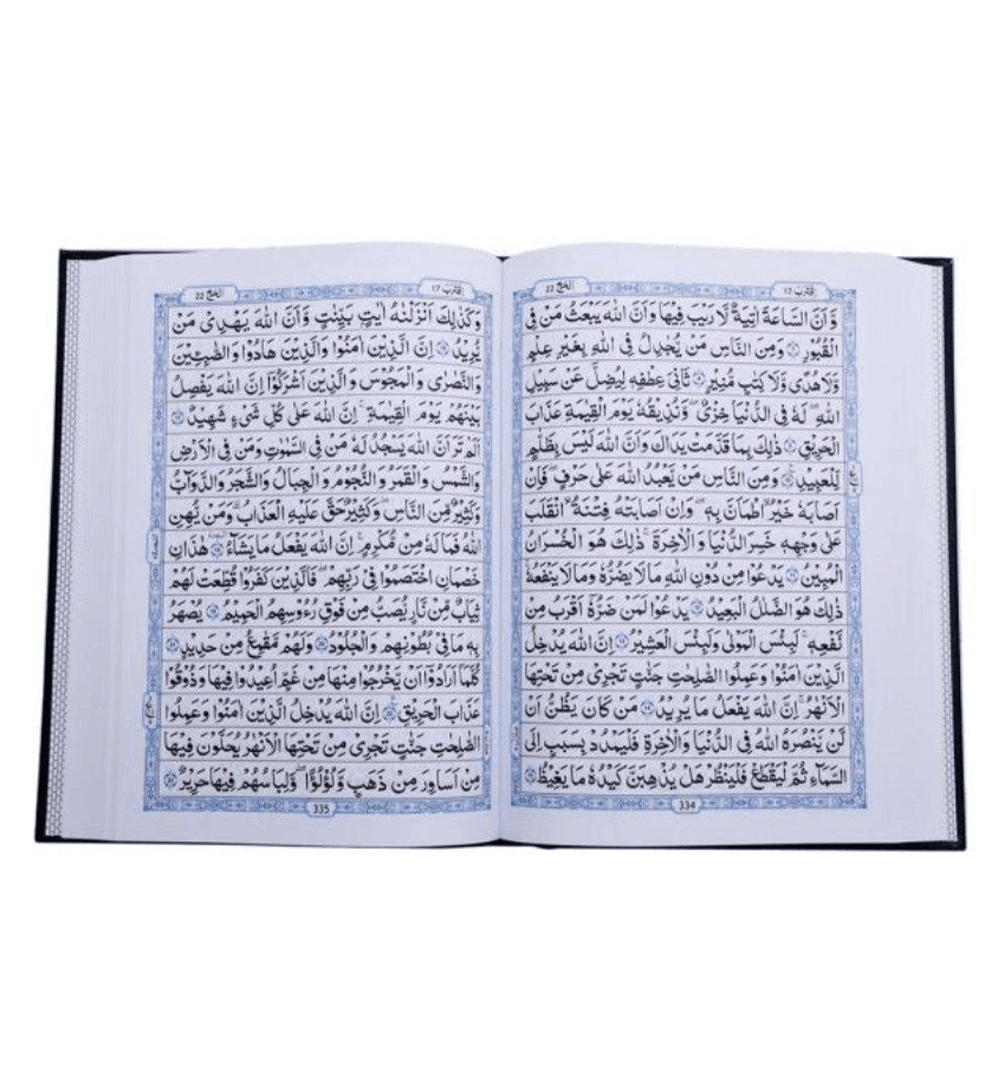 اقترب ١٧
الحج ٢٢
وَّاَنَّ السَّاعَةَ اٰتِيَةٌ لَّا رَيْبَ فِيْهَا وَاَنَّ اللّٰهَ يَبْعَثُ مَنْ فِى
الْقُبُوْرِ ۝٧ وَمِنَ النَّاسِ مَنْ يُّجَادِلُ فِى اللّٰهِ بِغَيْرِ عِلْمٍ
وَّلَا هُدًى وَّلَا كِتٰبٍ مُّنِيْرٍ ۝٨ ثَانِىَ عِطْفِهٖ لِيُضِلَّ عَنْ سَبِيْلِ
اللّٰهِ ؕ لَهٗ فِى الدُّنْيَا خِزْىٌ وَّنُذِيْقُهٗ يَوْمَ الْقِيٰمَةِ عَذَابَ
الْحَرِيْقِ ۝٩ ذٰلِكَ بِمَا قَدَّمَتْ يَدٰكَ وَاَنَّ اللّٰهَ لَيْسَ بِظَلَّامٍ
لِّلْعَبِيْدِ ۝١٠ وَمِنَ النَّاسِ مَنْ يَّعْبُدُ اللّٰهَ عَلٰى حَرْفٍ ۚ فَاِنْ
اَصَابَهٗ خَيْرٌ اۨطْمَاَنَّ بِهٖ ۚ وَاِنْ اَصَابَتْهُ فِتْنَةُ اۨنْقَلَبَ
عَلٰى وَجْهِهٖ ۚ خَسِرَ الدُّنْيَا وَالْاٰخِرَةَ ؕ ذٰلِكَ هُوَ الْخُسْرَانُ
الْمُبِيْنُ ۝١١ يَدْعُوْا مِنْ دُوْنِ اللّٰهِ مَا لَا يَضُرُّهٗ وَمَا لَا يَنْفَعُهٗ ؕ
ذٰلِكَ هُوَ الضَّلٰلُ الْبَعِيْدُ ۝١٢ يَدْعُوْا لَمَنْ ضَرُّهٗۤ اَقْرَبُ مِنْ
نَّفْعِهٖ ؕ لَبِئْسَ الْمَوْلٰى وَلَبِئْسَ الْعَشِيْرُ ۝١٣ اِنَّ اللّٰهَ يُدْخِلُ
الَّذِيْنَ اٰمَنُوْا وَعَمِلُوا الصّٰلِحٰتِ جَنّٰتٍ تَجْرِىْ مِنْ تَحْتِهَا
الْاَنْهٰرُ ؕ اِنَّ اللّٰهَ يَفْعَلُ مَا يُرِيْدُ ۝١٤ مَنْ كَانَ يَظُنُّ اَنْ
لَّنْ يَّنْصُرَهُ اللّٰهُ فِى الدُّنْيَا وَالْاٰخِرَةِ فَلْيَمْدُدْ بِسَبَبٍ اِلَى
السَّمَآءِ ثُمَّ لْيَقْطَعْ فَلْيَنْظُرْ هَلْ يُذْهِبَنَّ كَيْدُهٗ مَا يَغِيْظُ ۝١٥
334
اقترب ١٧
الحج ٢٢
وَكَذٰلِكَ اَنْزَلْنٰهُ اٰيٰتٍۢ بَيِّنٰتٍ وَّاَنَّ اللّٰهَ يَهْدِىْ مَنْ
يُّرِيْدُ ۝١٦ اِنَّ الَّذِيْنَ اٰمَنُوْا وَالَّذِيْنَ هَادُوْا وَالصّٰبِئِيْنَ
وَالنَّصٰرٰى وَالْمَجُوْسَ وَالَّذِيْنَ اَشْرَكُوْۤا ۖ اِنَّ اللّٰهَ يَفْصِلُ
بَيْنَهُمْ يَوْمَ الْقِيٰمَةِ ؕ اِنَّ اللّٰهَ عَلٰى كُلِّ شَىْءٍ شَهِيْدٌ ۝١٧
اَلَمْ تَرَ اَنَّ اللّٰهَ يَسْجُدُ لَهٗ مَنْ فِى السَّمٰوٰتِ وَمَنْ فِى الْاَرْضِ
وَالشَّمْسُ وَالْقَمَرُ وَالنُّجُوْمُ وَالْجِبَالُ وَالشَّجَرُ وَالدَّوَآبُّ
وَكَثِيْرٌ مِّنَ النَّاسِ ؕ وَكَثِيْرٌ حَقَّ عَلَيْهِ الْعَذَابُ ؕ وَمَنْ يُّهِنِ
اللّٰهُ فَمَا لَهٗ مِنْ مُّكْرِمٍ ؕ اِنَّ اللّٰهَ يَفْعَلُ مَا يَشَآءُ ۝١٨ هٰذٰنِ
خَصْمٰنِ اخْتَصَمُوْا فِىْ رَبِّهِمْ ؗ فَالَّذِيْنَ كَفَرُوْا قُطِّعَتْ لَهُمْ
ثِيَابٌ مِّنْ نَّارٍ ؕ يُصَبُّ مِنْ فَوْقِ رُءُوْسِهِمُ الْحَمِيْمُ ۝١٩ يُصْهَرُ
بِهٖ مَا فِىْ بُطُوْنِهِمْ وَالْجُلُوْدُ ۝٢٠ وَلَهُمْ مَّقَامِعُ مِنْ حَدِيْدٍ ۝٢١
كُلَّمَاۤ اَرَادُوْۤا اَنْ يَّخْرُجُوْا مِنْهَا مِنْ غَمٍّ اُعِيْدُوْا فِيْهَا وَذُوْقُوْا
عَذَابَ الْحَرِيْقِ ۝٢٢ اِنَّ اللّٰهَ يُدْخِلُ الَّذِيْنَ اٰمَنُوْا وَعَمِلُوا
الصّٰلِحٰتِ جَنّٰتٍ تَجْرِىْ مِنْ تَحْتِهَا الْاَنْهٰرُ يُحَلَّوْنَ فِيْهَا
مِنْ اَسَاوِرَ مِنْ ذَهَبٍ وَّلُؤْلُؤًا ؕ وَلِبَاسُهُمْ فِيْهَا حَرِيْرٌ ۝٢٣
335